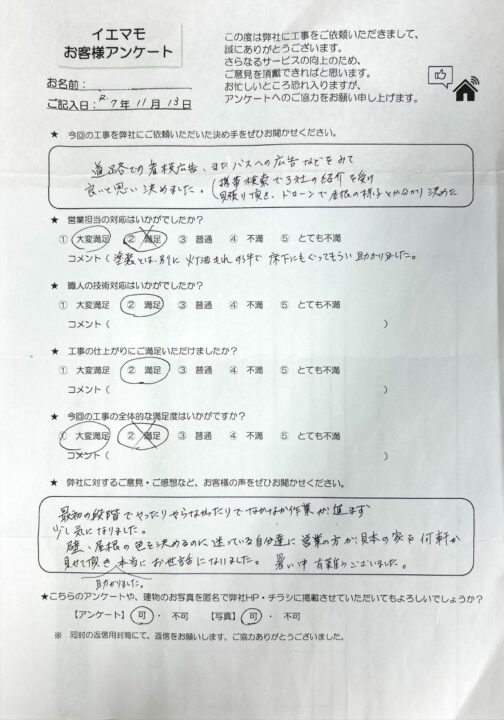 イエマモ
お客様アンケート
この度は弊社に工事をご依頼いただきまして、
誠にありがとうございます。
さらなるサービスの向上のため、
ご意見を頂戴できればと思います。
お忙しいところ恐れ入りますが、
アンケートへのご協力をお願い申し上げます。
お名前：
ご記入日：R.7年11月13日
★ 今回の工事を弊社にご依頼いただいた決め手をぜひお聞かせください。
道路での看板広告、またバスへの広告などをみて
良いと思い決めました。（携帯検索で3社の紹介を受け
見積り頂き、ドローンで屋根の様子とか分かり）決めた
★ 営業担当の対応はいかがでしたか？
① 大変満足 ② 満足 ③ 普通 ④ 不満 ⑤ とても不満
コメント（塗装とは別に 灯油もれの件で 床下にもぐってもらい 助かりました。
★ 職人の技術対応はいかがでしたか？
① 大変満足 ② 満足 ③ 普通 ④ 不満 ⑤ とても不満
コメント（ ）
★ 工事の仕上がりにご満足いただけましたか？
① 大変満足 ② 満足 ③ 普通 ④ 不満 ⑤ とても不満
コメント（ ）
★ 今回の工事の全体的な満足度はいかがですか？
① 大変満足 ② 満足 ③ 普通 ④ 不満 ⑤ とても不満
コメント（ ）
★ 弊社に対するご意見・ご感想など、お客様の声をぜひお聞かせください。
最初の段階でやったりやらなかったりでなかなか作業が進まず
少し気になりました。
壁、屋根の色を決めるのに迷っている自分達に営業の方が見本の家を何軒か
見せて頂き 本当にお世話になりました。 暑い中 有難うございました。
助かりました。
★こちらのアンケートや、建物のお写真を匿名で弊社HP・チラシに掲載させていただいてもよろしいでしょうか？
【アンケート】 可 ・ 不可 【写真】 可 ・ 不可
※ 同封の返信用封筒にて、返信をお願いします。ご協力ありがとうございました。